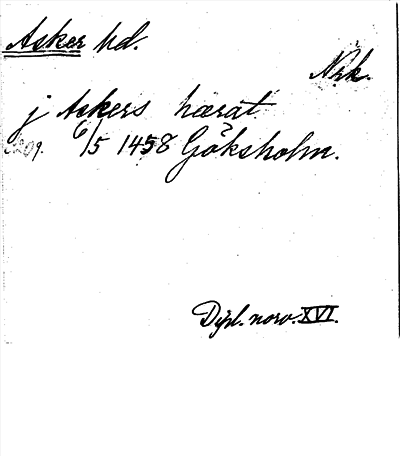 Asker hd.
Nrk.
j Askers hærat
6/5 1458 Göksholm.
Dipl. norv. XVI.